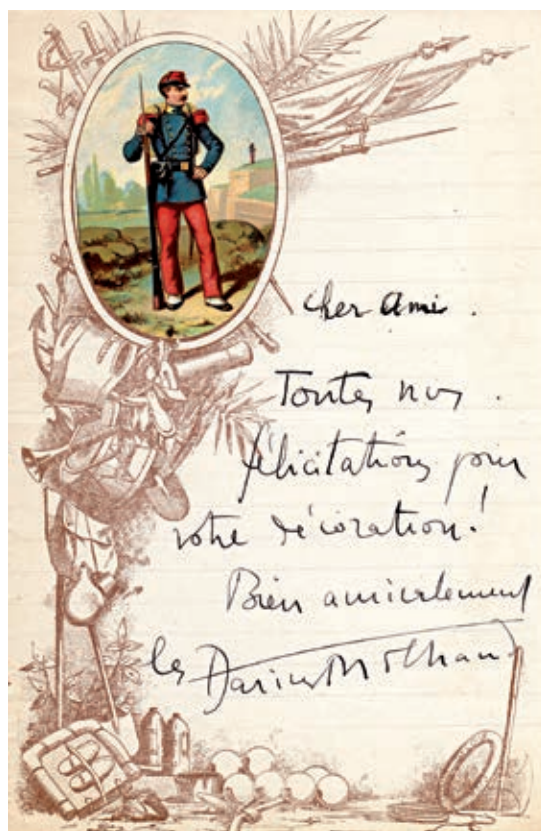 cher ami.
Toutes nos.
félicitations pour
votre décoration!
Bien amicalement
les Darius Milhaud